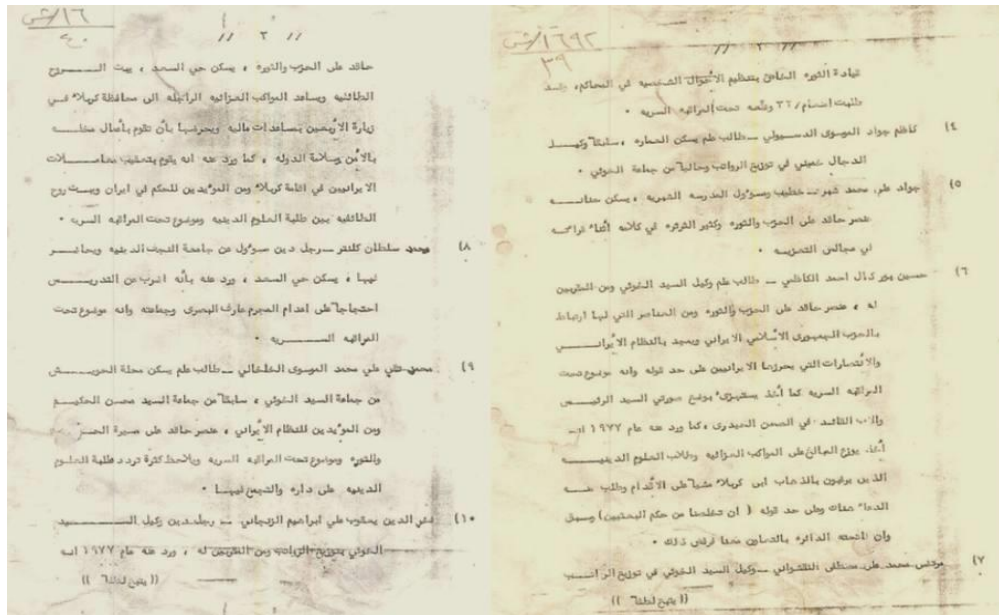 ١٦٩٢/ش
٣٩
قيادة الثوره الخاص بتنظيم الأحوال الشخصيه في المحاكم،
تحت المراقبه السريه ·
٤) كاظم جواد الموسوى ــ طالب علم يسكن العماره ، سابقا وكيـــل
الدجال خميني في توزيع الرواتب وحاليا من جماعة الخوئي ·
٥) جواد علي محمد شبر ــ خطيب ومسؤول المدرسه الشبريه ، يسكن
عنصر حاقد على الحزب والثوره وكثير الثرثره في كلامه أثناء
في مجالس التعزيـــه ·
٦) حسين احمد الكاظمي ــ طالب علم وكيل السيد الخوئي ومن المقربين
له ، عنصر حاقد على الحزب والثوره ومن العناصر التي لها ارتباط
بالحزب الجمهورى الأسلامي الايراني ويمجد بالنظام الأيرانـــي
والأنتصارات التي يحرزها الايرانيين على حد قوله وانه موضوع تحت
المراقبه السريه كما أخذ يستهزئ بوضع صورتي السيد الرئيـــس
والاب القائد في الصحن الحيدرى ، كما ورد عنه عام ١٩٧٧ انه
أخذ يوزع المبالغ على المواكب العزائيه وطلاب العلوم الدينيـــه
الذين يرغبون بالذهاب الى كربلاء مشيا على الأقدام وطلب منـــه
الدعاء هناك وعلى حد قوله ( ان تخلصنا من حكم البعثيين ) وسبق
وان فاتحته الدائره بالتعاون معنا فرفض ذلك ·
٧) مرتضى محمد علي مصطفى ــ وكيل السيد الخوئي في توزيع الرواتـــب
(( يتبع لطفا ))
١٦/ش
٤٠
// ٣ //
حاقد على الحزب والثوره ، يسكن حي السعد ، يبث الـــروح
الطائفيه ويساعد المواكب العزائيه الراجله الى محافظة كربلاء فـــي
زيارة الأربعين بمساعدات ماليه ويحرضها بأن تقوم بأعمال مخلـــه
بالأمن وسلامة الدوله ، كما ورد عنه انه يقوم بتعقيب معامـــلات
الايرانيين في اقامة كربلاء ومن المؤيدين للحكم في ايران ويبـــث روح
الطائفيه بين طلبة العلوم الدينيه وموضوع تحت المراقبه السريه ·
٨) محمد سلطان كلنتر ــ رجل دين مسؤول عن جامعة النجف الدينيه ويحاضـــر
فيها ، يسكن حي السعد ، ورد عنه بأنه اضرب عن التدريـــس
احتجاجا على اعدام المجرم عارف البصرى وجماعته وانه موضوع تحت
المراقبه الســـريه ·
٩) محمد تقي علي محمد الموسوى الخلخالي ــ طالب علم يسكن محلة الحويـــش
من جماعة السيد الخوئي ، سابقا من جماعة السيد محسن الحكيـــم
ومن المؤيدين للنظام الأيراني ، عنصر حاقد على مسيرة الحـــزب
والثوره وموضوع تحت المراقبه السريه ويلاحظ كثرة تردد طلبة العلـــوم
الدينيه على داره والتجمع فيهـــا ·
١٠) تقي الدين يعقوب علي ابراهيم الزنجاني ــ رجل دين وكيل الســـيد
الخوئي بتوزيع الرواتب ومن المقربين له ، ورد عنه عام ١٩٧٧ انـــه
(( يتبع لطفا ))